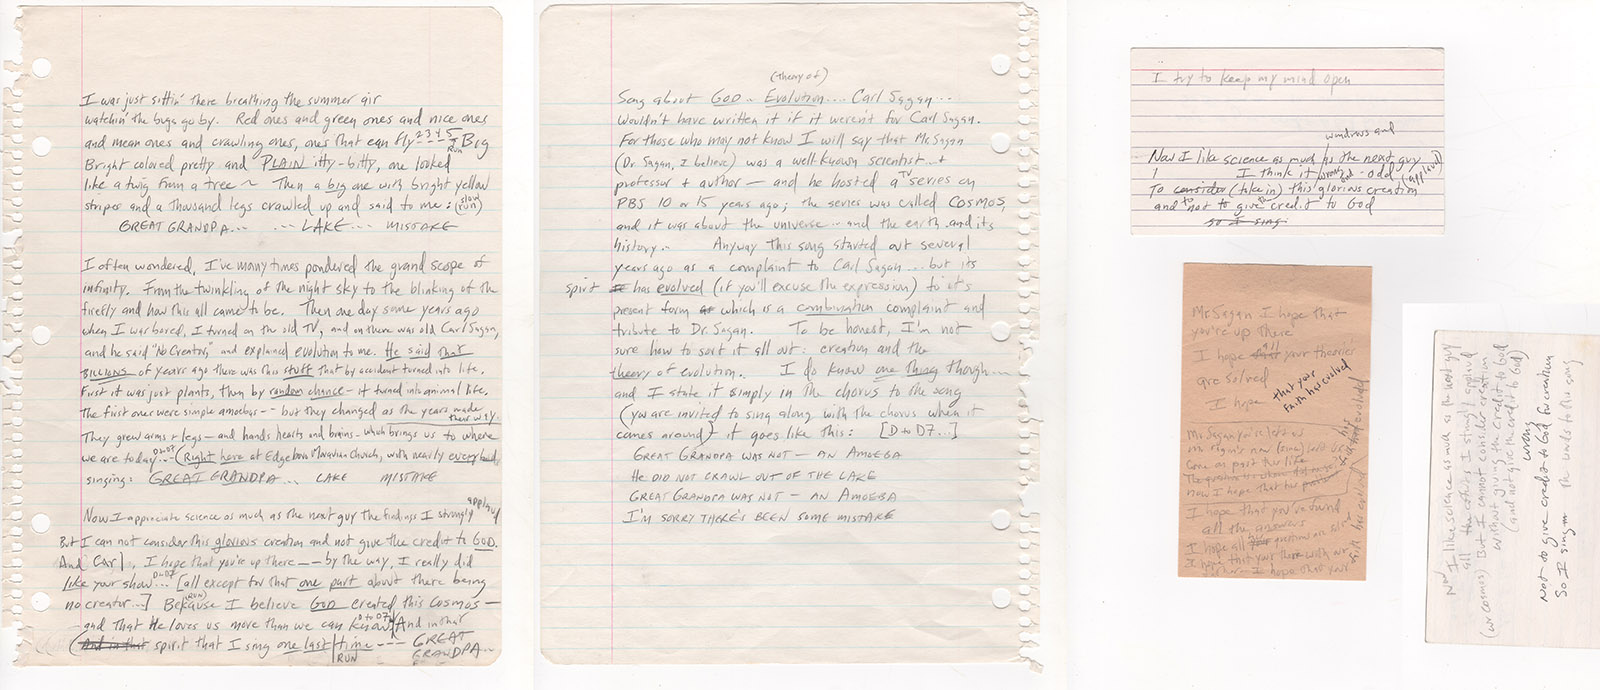 I was just sittin' there breathing the summer air
watchin' the bugs go by. Red ones and green ones and nice ones
and mean ones and crawling ones, one's that can fly 2 3 4 5 RUN Big
Bright colored pretty and PLAIN itty-bitty, one looked
like a twig from a tree ~ Then a big one with bright yellow
stripes and a thousand legs crawled up and said to me: (slow RUN)
GREAT GRANDPA... ... LAKE... MISTAKE
I often wondered, I've many times pondered the grand scope of
infinity. From the twinkling of the night sky to the blinking of the
firefly and how this all came to be. Then one day some years ago
when I was bored, I turned on the old TV, and on there was old Carl Sagan,
and he said "No Creator," and explained evolution to me. He said that
BILLIONS of years ago there was this stuff that by accident turned into life.
First it was just plants, then by random chance - it turned into animal life.
The first one were simple amoebas -- but they changed as the years made their way
They grew arms + legs - and hands hearts and brains - which brings us to where
we are today... D to D7 (Right here at Edgeboro Moravian Church, with nearly everybody
singing: GREAT GRANDPA... LAKE MISTAKE
Now I appreciate science as much as the next guy the findings I strongly applaud
But I can not consider this glorious creation and not give the credit to GOD.
And [Carl], I hope that you're up there -- by the way, I really did
like your show... D to D7 [all except for that one part about there being
no creator...] (RUN) Because I believe GOD created this Cosmos -
and that He loves us more than we can know D to D7 And in that
(And in that spirit that I sing one last | time --- GREAT
RUN GRANDPA...
(theory of)
Song about GOD.. Evolution.... Carl Sagan...
Wouldn't have written it if it weren't for Carl Sagan.
For those who may not know I will say that Mr Sagan
(Dr. Sagan, I believe) was a well known scientist..+
professor + author - and he hosted a TV series on
PBS 10 or 15 years ago; the series was called COSMOS,
and it was about the universe.. and the earth and its
history.. Anyway this song started out several
years ago as a complaint to Carl Sagan... but its
spirit has evolved (if you'll excuse the expression) to it's
present form which is a combination complaint and
tribute to Dr. Sagan. To be honest, I'm not
sure how to sort it all out: creation and the
theory of evolution. I do know one thing though...
and I state it simply in the chorus to the song
(you are invited to sing along with the chorus when it
comes around) it goes like this: [D to D7...]
GREAT GRANDPA WAS NOT - AN AMOEBA
HE DID NOT CRAWL OUT OF THE LAKE
GREAT GRANDPA WAS NOT - AN AMOEBA
I'M SORRY THERE'S BEEN SOME MISTAKE
I try to keep my mind open
wondrous and
Now I like science as much as the next guy
I think it wrong odd - odd (applaud)
To consider (take in) this glorious creation
and to not to give credit to God
so I sing
Mr Sagan I hope that
you're up there
I hope all your theories
are solved
I hope that your
faith has evolved
Mr Sagan you've left us
gone on past this life
now I hope that his
I hope that you've found
all the answers
I hope all
Now I like science as much as the next guy
all the I strongly applaud
(wr cosmos) But I cannot consider creation
without giving the credit to God
(and not give the credit to God)
wrong
Not to give credit to God for creation
So I sing the words to this song